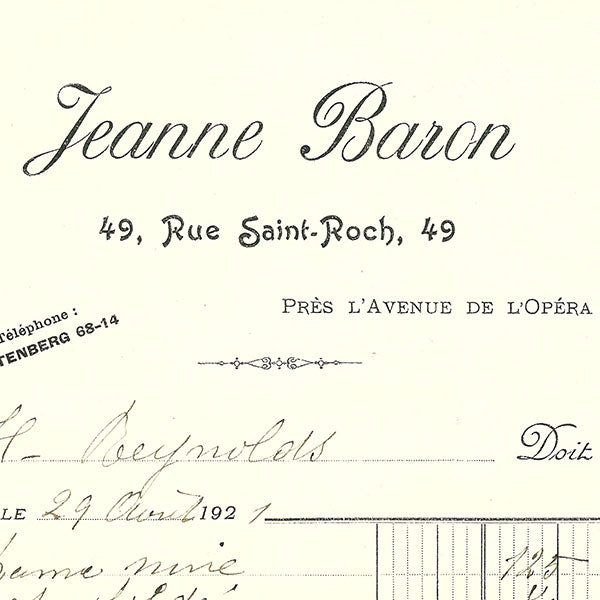 Jeanne Baron
49, Rue Saint-Roch, 49
PRÈS L'AVENUE DE L'OPÉRA
Téléphone :
TENBERG 68-14
H- Reynolds Doit
LE 29 Août 1921
125